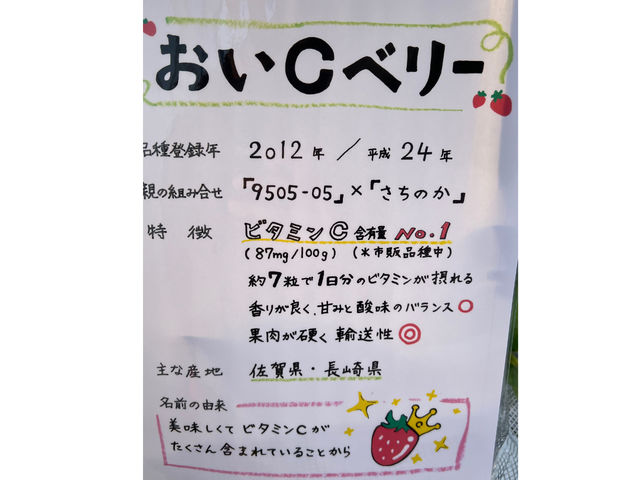 おいCベリー
品種登録年 2012年 / 平成24年
親の組み合せ 「9505-05」×「さちのか」
特徴 ビタミンC含有量 No.1
(87mg/100g) (※市販品種中)
約7粒で1日分のビタミンが摂れる
香りが良く、甘みと酸味のバランス○
果肉が硬く輸送性◎
主な産地 佐賀県・長崎県
名前の由来
美味しくてビタミンCが
たくさん含まれていることから